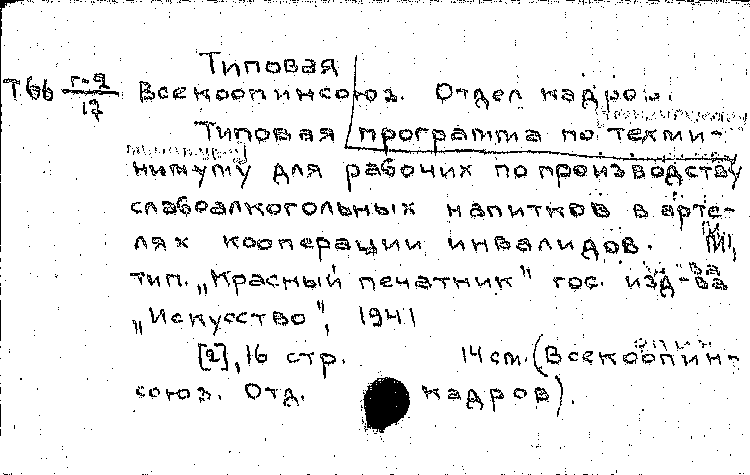 Типовая
Т66 г-9/17 Всекоопинсоюз. Отдел кадров.
Типовая программа по техми-
нимуму для рабочих по производству
слабоалкогольных напитков в арте-
лях кооперации инвалидов. М.,
тип. „Красный печатник" гос. изд-ва
„Искусство", 1941
[2], 16 стр. 14 см. (Всекоопин-
союз. Отд. кадров).